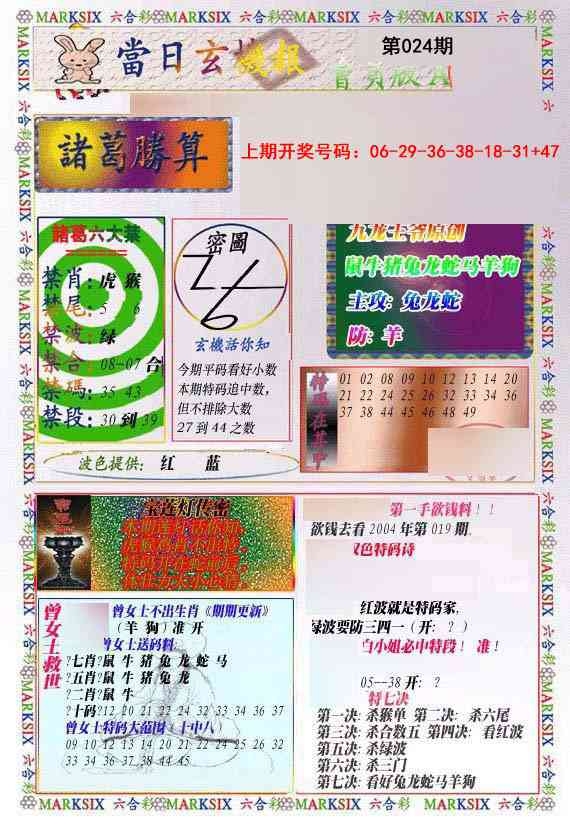 MARKSIX 六合彩 MARKSIX 六合彩 MARKSIX 六合彩 MARKSIX 六合彩
當日玄機報
第024期
諸葛勝算
上期开奖号码：06-29-36-38-18-31+47
諸葛六大禁
禁肖：虎 猴
禁尾：5 6
禁波：绿
禁合：08-07合
禁碼：35 43
禁段：30到39
密圖
玄機話你知
今期平码看好小数
本期特码追中数，
但不排除大数
27到44之数
九龙王爷原创
鼠牛猪兔龙蛇马羊狗
主攻：兔龙蛇
防：羊
特码在其中
01 02 08 09 10 12 13 14 20
21 22 24 25 26 32 33 34 36
37 38 44 45 46 48 49
波色提供： 红 蓝
宝莲灯传密
第一手欲钱料！！
欲钱去看2004年第019期.
双色特码诗
红波就是特码家,
绿波要防三四一（开：？）
白小姐必中特段！准！
05--38开：？
特七决
第一决：杀猴单 第二决：杀六尾
第三决：杀合数五 第四决：看红波
第五决：杀绿波
第六决：杀三门
第七决：看好兔龙蛇马羊狗
曾女士救世
曾女士不出生肖《期期更新》
（羊 狗）准 开
曾女士送码料:
?七肖?鼠 牛 猪 兔 龙 蛇 马
?五肖?鼠 牛 猪 兔 龙
?二肖?鼠 牛
?十码?12 20 21 22 24 32 33 34 36 37
曾女士特码大范围（十中八）
09 10 12 13 14 20 21 22 24 25 26 32
33 34 36 37 38 44 45
MARKSIX 六合彩 MARKSIX 六合彩 MARKSIX 六合彩 MARKSIX 六合彩